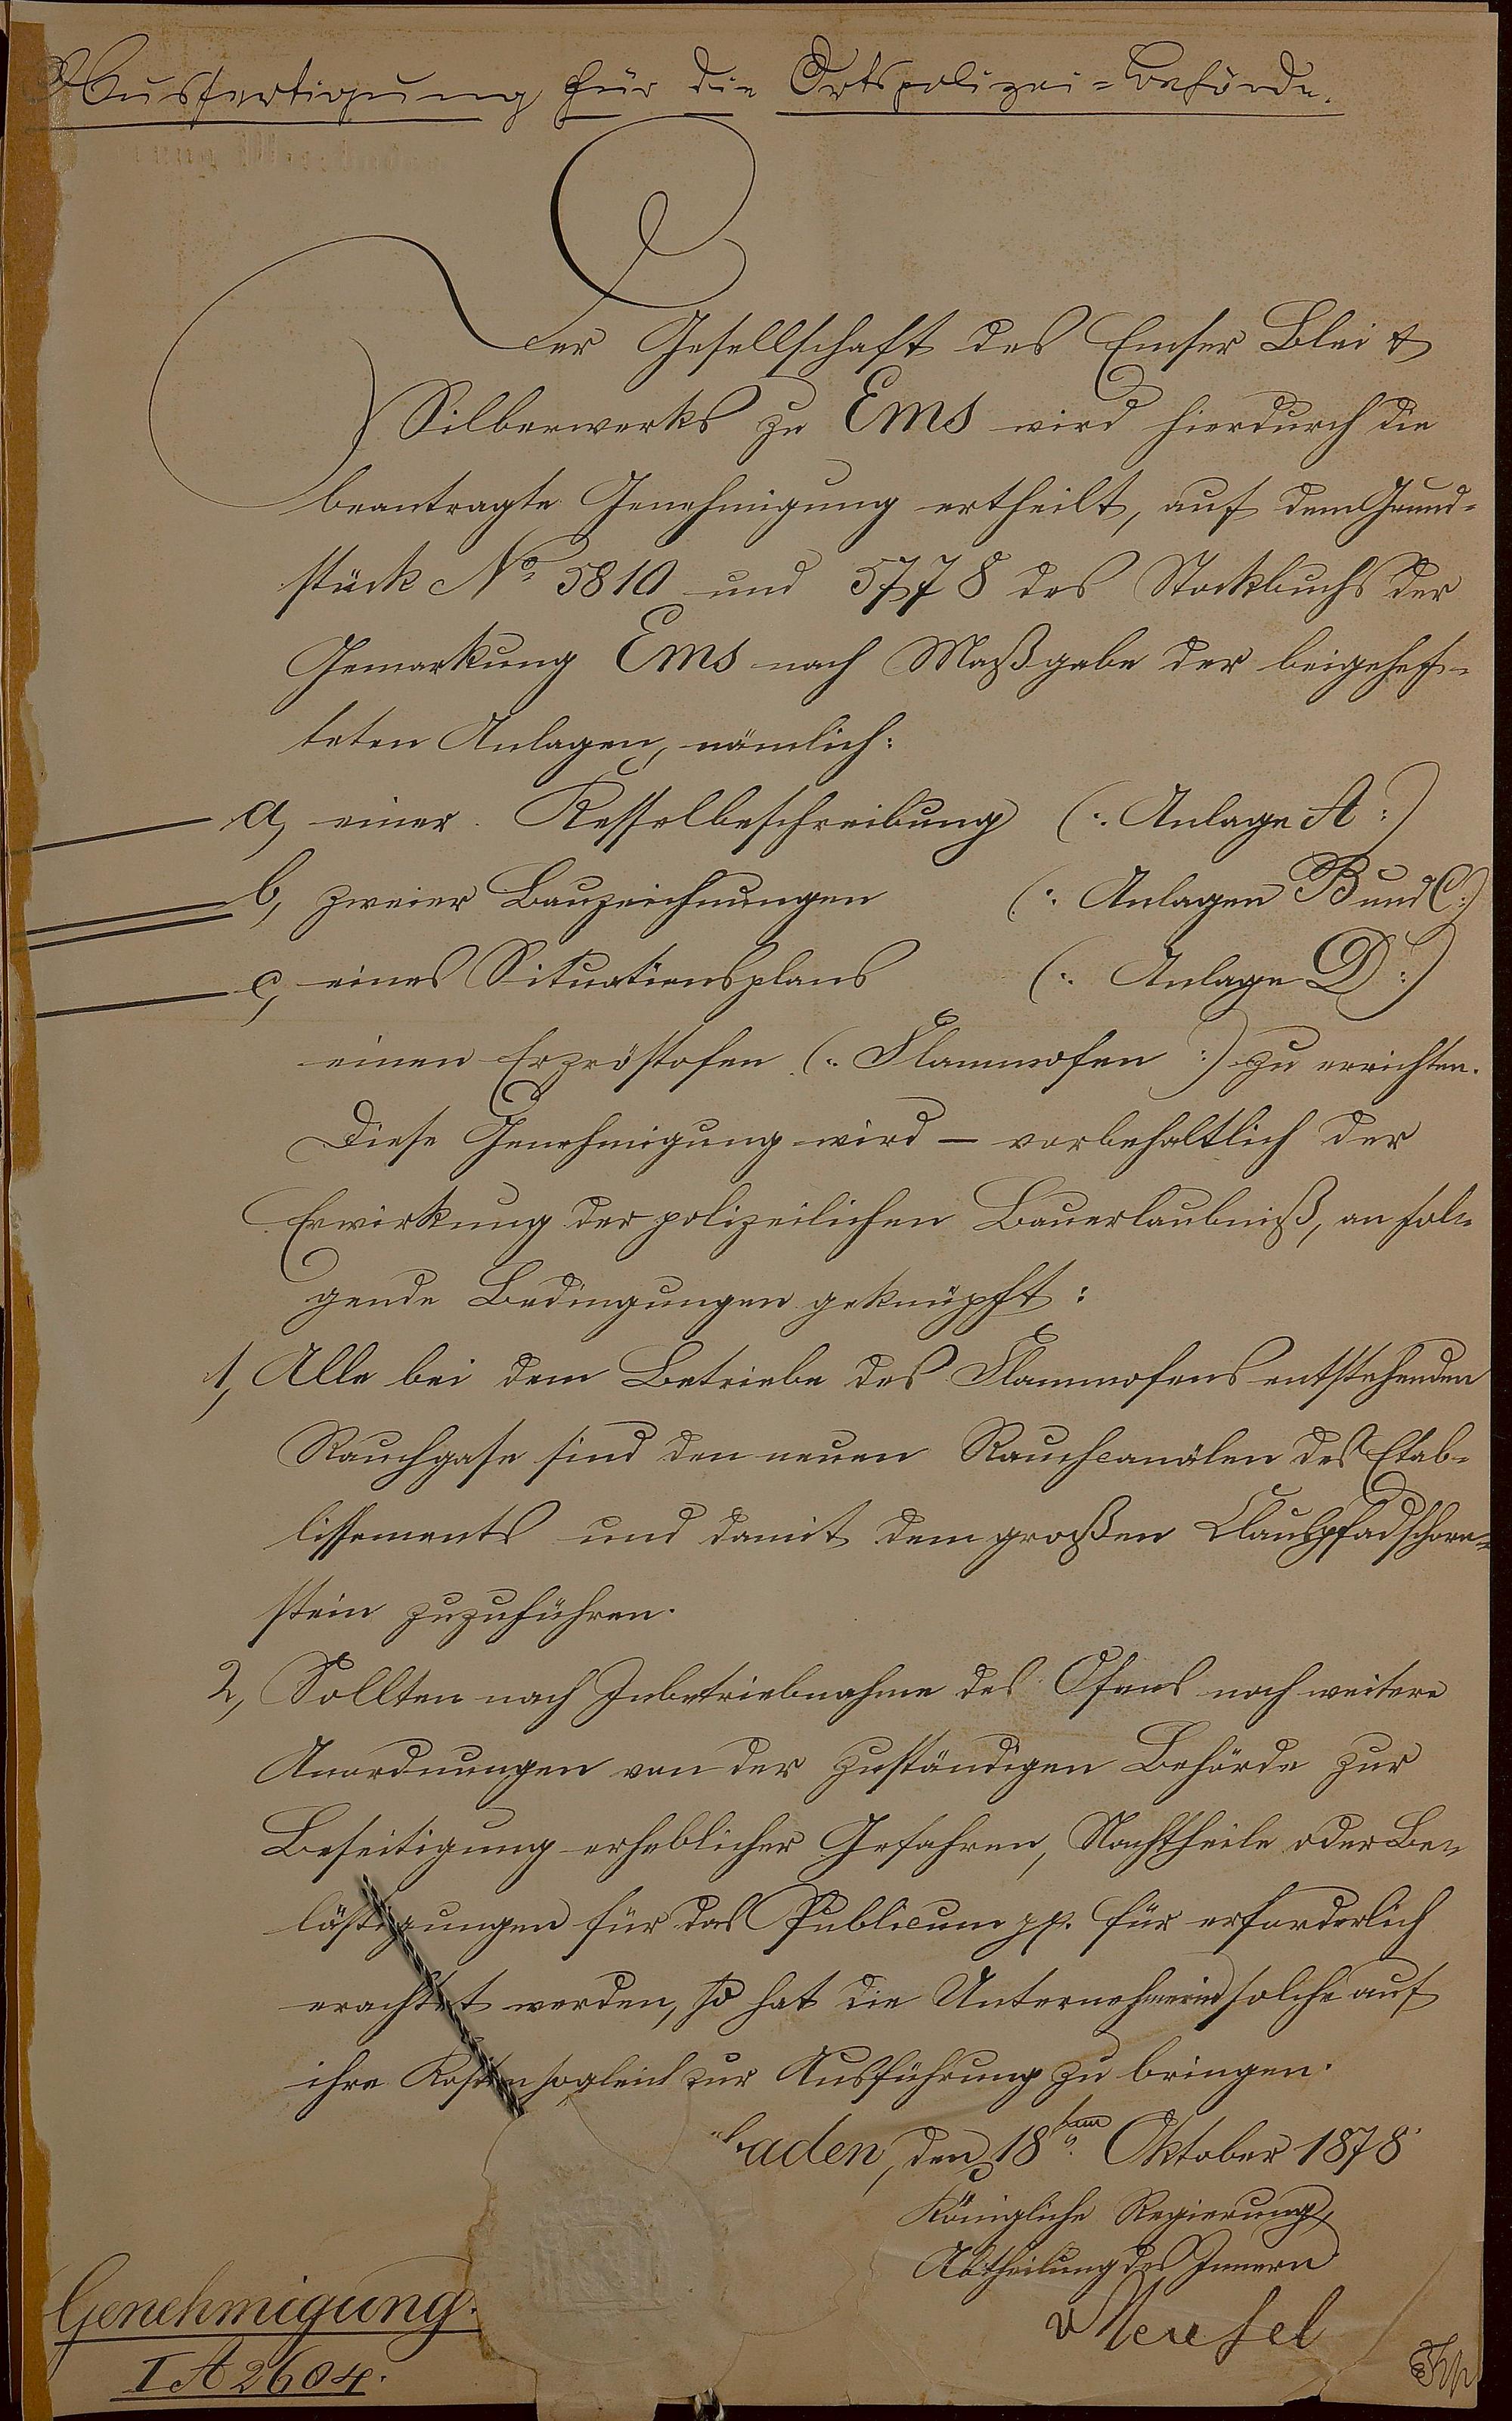 Ausfertigung für die Ortspolizei-Behörde.
Der Gesellschaft des Emser Blei &
Silberwerks zu Ems wird hierdurch die
beantragte Genehmigung ertheilt, auf dem Grund-
stück No 5810 und 5778 des Stockbuchs der
Gemarkung Ems nach Maßgabe der beigehef-
teten Anlagen, nämlich:
a, einer Kesselbeschreibung (: Anlage A :)
b, zweier Bauzeichnungen (: Anlagen B und C :)
c, eines Situationsplans (: Anlage D :)
einen Erzröstofen (: Flammofen :) zu errichten.
Diese Genehmigung wird – vorbehaltlich der
Erwirkung der polizeilichen Bauerlaubniß, an fol-
gende Bedingungen geknüpft:
1, Alle bei dem Betriebe des Flammofens entstehenden
Rauchgase sind den neuen Rauchcanälen des Etab-
lissements und damit dem großen Blauhpfadschorn-
stein zuzuführen.
2, Sollten nach Inbetriebnahme des Ofens noch weitere
Anordnungen von der zuständigen Behörde zur
Beseitigung erheblicher Gefahren, Nachtheile oder Be-
lästigungen für das Publicum pp. für erforderlich
erachtet werden, so hat die Unternehmerin solche auf
ihre Kosten sogleich zur Ausführung zu bringen.
baden, den 18ten Oktober 1878
Königliche Regierung,
Abtheilung des Innern
Genehmigung.
I A 2604.